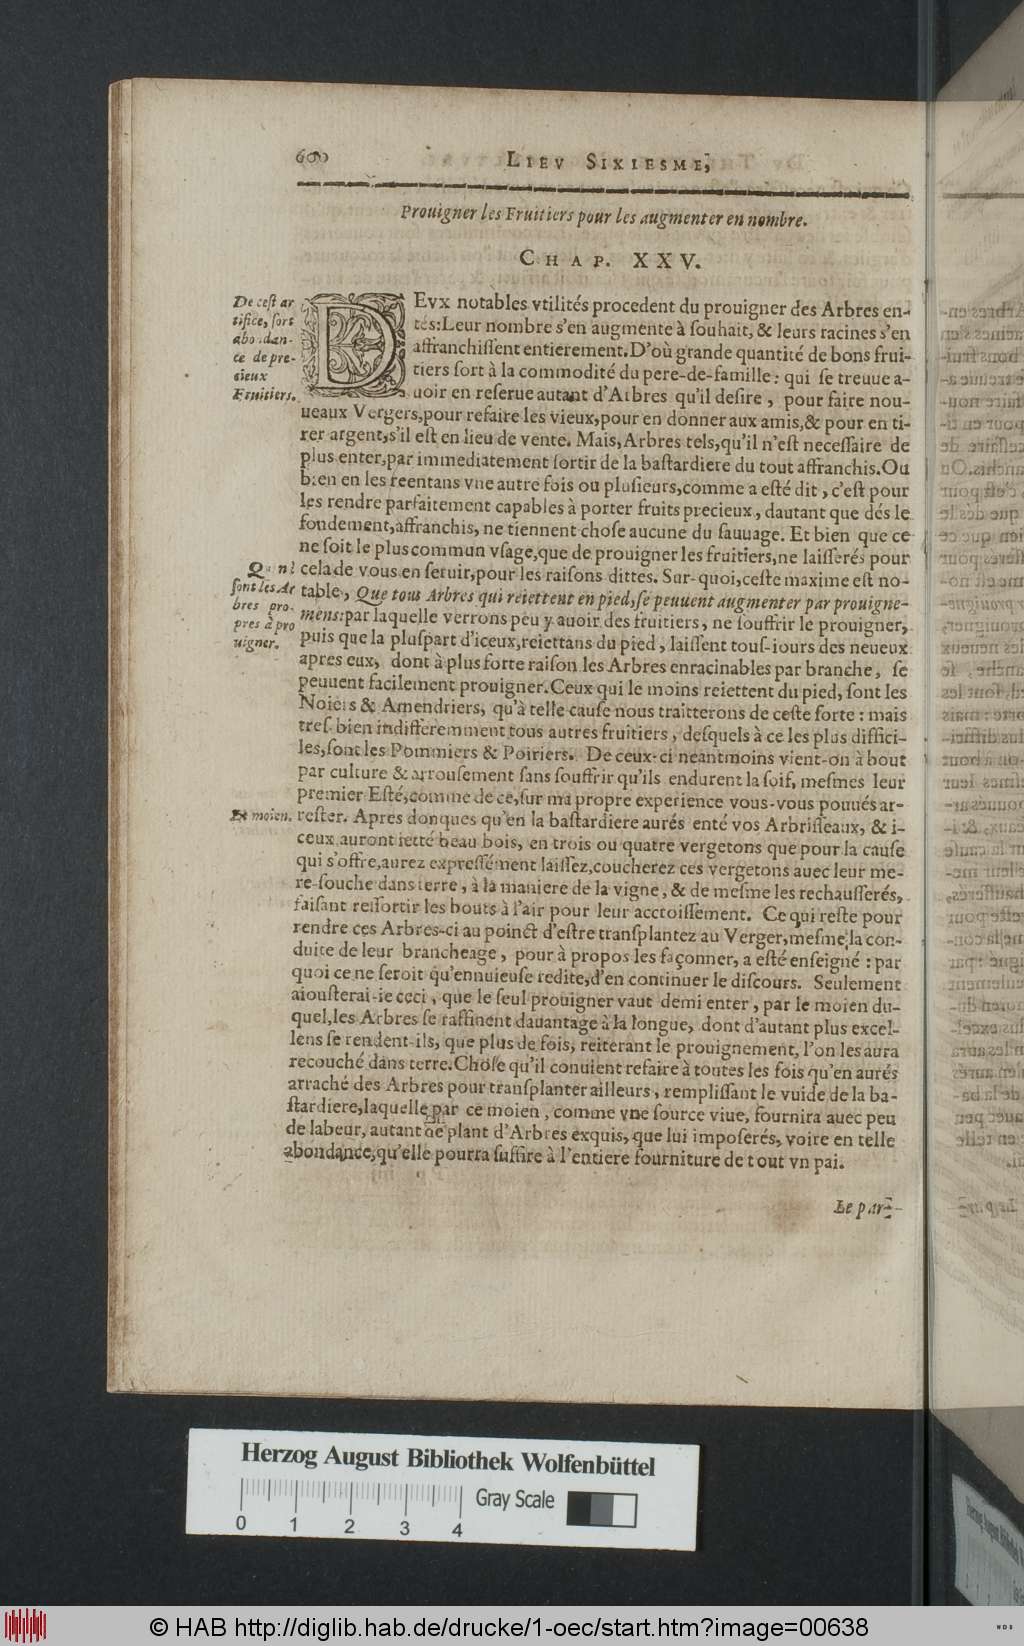 600
LIEV SIXIESME,
Prouigner les Fruitiers pour les augmenter en nombre.
CHAP. XXV.
De cest ar
tifice, sort
abondan-
ce de pre-
cieux
Fruitiers.
DEvx notables vtilités procedent du prouigner des Arbres en-
tés: Leur nombre s'en augmente à souhait, & leurs racines s'en
affranchissent entierement. D'où grande quantité de bons frui-
tiers sort à la commodité du pere-de-famille: qui se treuue a-
uoir en reserue autant d'Arbres qu'il desire, pour faire nou-
ueaux Vergers, pour refaire les vieux, pour en donner aux amis, & pour en ti-
rer argent, s'il est en lieu de vente. Mais, Arbres tels, qu'il n'est necessaire de
plus enter, par immediatement sortir de la bastardiere du tout affranchis. Ou
bien en les reentans vne autre fois ou plusieurs, comme a esté dit, c'est pour
les rendre parfaitement capables à porter fruits precieux, dautant que dés le
fondement, affranchis, ne tiennent chose aucune du sauuage. Et bien que ce
ne soit le plus commun vsage, que de prouigner les fruitiers, ne laisserés pour
cela de vous en seruir, pour les raisons dittes. Sur-quoi, ceste maxime est no-
table, Que tous Arbres qui reiettent en pied, se peuuent augmenter par prouigne-
mens: par laquelle verrons peu y auoir des fruitiers, ne souffrir le prouigner,
puis que la pluspart d'iceux, reiettans du pied, laissent tous-iours des neueux
apres eux, dont à plus forte raison les Arbres enracinables par branche, se
peuuent facilement prouigner. Ceux qui le moins reiettent du pied, sont les
Noiers & Amendriers, qu'à telle cause nous traitterons de ceste sorte: mais
tres-bien indifferemment tous autres fruitiers, desquels à ce les plus diffici-
les, sont les Pommiers & Poiriers. De ceux-ci neantmoins vient-on à bout
par culture & arrousement sans souffrir qu'ils endurent la soif, mesmes leur
premier Esté, comme de ce, sur ma propre experience vous-vous pouués ar-
rester. Apres donques qu'en la bastardiere aurés enté vos Arbrisseaux, & i-
ceux auront ietté beau bois, en trois ou quatre vergetons que pour la cause
qui s'offre, aurez expressément laissez, coucherez ces vergetons auec leur me-
re-souche dans terre, à la maniere de la vigne, & de mesme les rechausserés,
faisant ressortir les bouts à l'air pour leur accroissement. Ce qui reste pour
rendre ces Arbres-ci au poinct d'estre transplantez au Verger, mesme, la con-
duite de leur brancheage, pour à propos les façonner, a esté enseigné: par
quoi ce ne seroit qu'ennuieuse redite, d'en continuer le discours. Seulement
aiousterai-ie ceci, que le seul prouigner vaut demi enter, par le moien du-
quel, les Arbres se raffinent dauantage à la longue, dont d'autant plus excel-
lens se rendent-ils, que plus de fois, reiterant le prouignement, l'on les aura
recouché dans terre. Chose qu'il conuient refaire à toutes les fois qu'en aurés
arraché des Arbres pour transplanter ailleurs, remplissant le vuide de la ba-
stardiere, laquelle par ce moien, comme vne source viue, fournira auec peu
de labeur, autant de plant d'Arbres exquis, que lui imposerés, voire en telle
abondance, qu'elle pourra suffire à l'entiere fourniture de tout vn pai.
Quels
sont les Ar
bres pro-
pres à pro
uigner.
Le moien.
Le par-
Herzog August Bibliothek Wolfenbüttel
Gray Scale
0 1 2 3 4
© HAB http://diglib.hab.de/drucke/1-oec/start.htm?image=00638